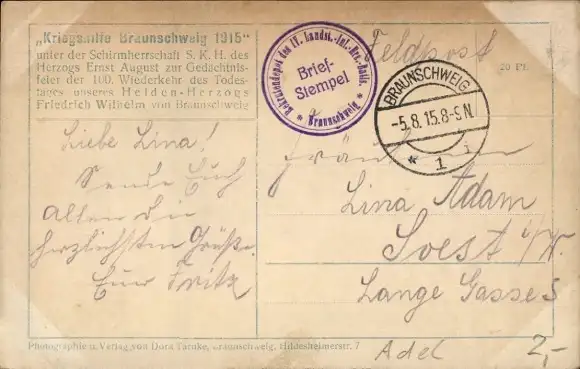 „Kriegshilfe Braunschweig 1915“
unter der Schirmherrschaft S. K. H. des
Herzogs Ernst August zur Gedächtnis-
feier der 100. Wiederkehr des Todes-
tages unseres Helden-Herzogs
Friedrich Wilhelm von Braunschweig
Rekrutendepot des IV. Landst.-Inf.-Ers.-Batls.
Brief-
Stempel
* Braunschweig *
Feldpost
20 Pf.
BRAUNSCHWEIG
-5.8.15.8-9N.
* 1 i
Liebe Lina!
Sende Euch
allen die
herzlichsten Grüße.
Euer Fritz
Fräulein
Lina Adam
Soest i/W.
Lange Gasse 5
Photographie u. Verlag von Dora Tarnke, Braunschweig, Hildesheimerstr. 7
Adel
2,-